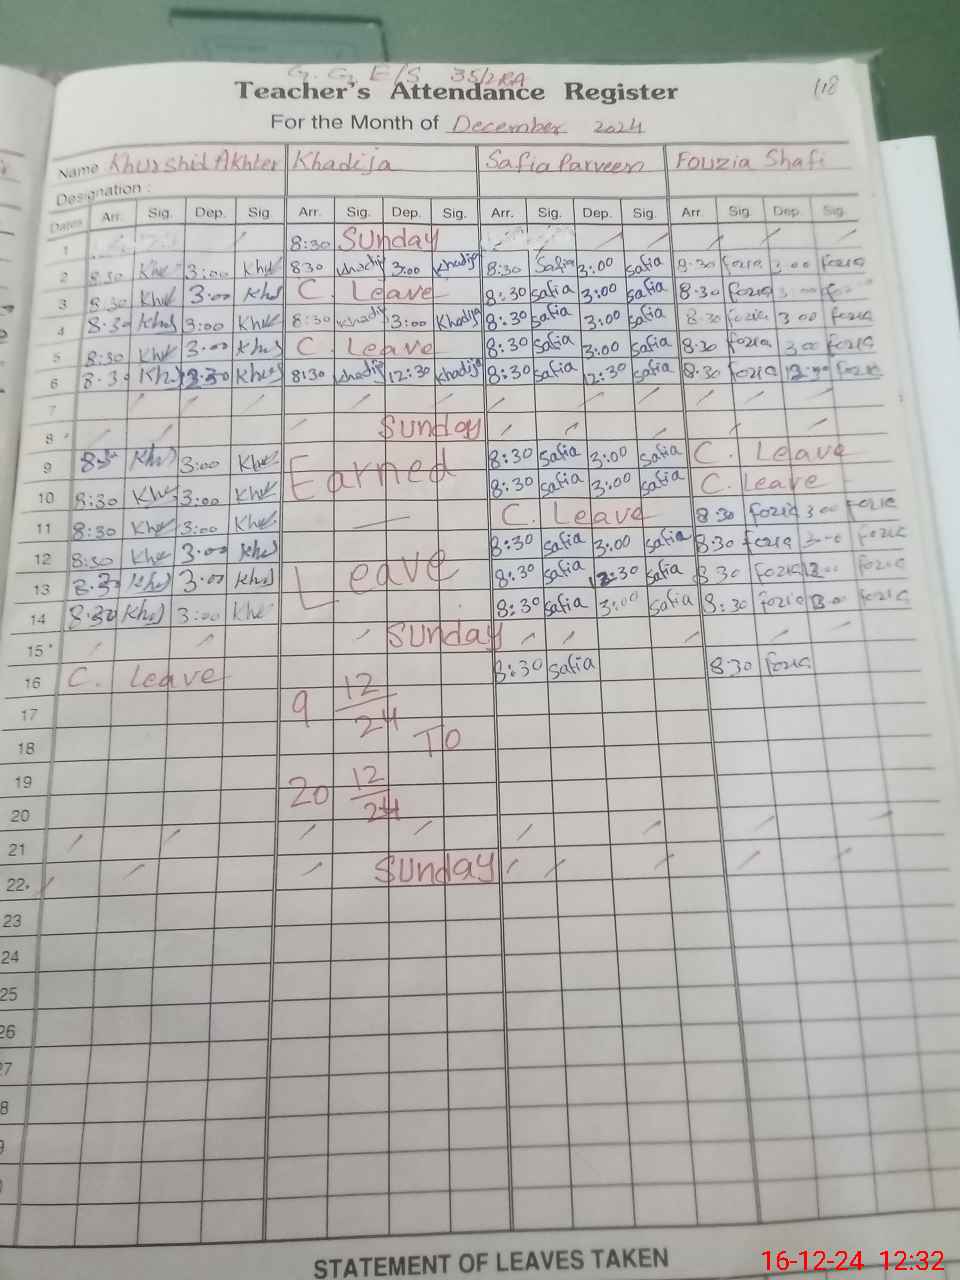 G. G. E/S 35/2RA
118
Teacher's Attendance Register
For the Month of December 2024
Name Khurshid Akhter Khadija Safia Parveen Fouzia Shafi
Designation :
Dates Arr. Sig. Dep. Sig Arr. Sig. Dep. Sig. Arr. Sig. Dep. Sig. Arr. Sig. Dep. Sig.
1 8:30 Sunday
2 8:30 3:00 8:30 Khadija 3:00 Khadija 8:30 Safia 3:00 Safia 8:30 fozia 3:00 fozia
3 8:30 3:00 C. Leave 8:30 Safia 3:00 Safia 8:30 fozia 3:00
4 8:30 3:00 8:30 Khadija 3:00 Khadija 8:30 Safia 3:00 Safia 8:30 fozia 3:00 fozia
5 8:30 3:00 C. Leave 8:30 Safia 3:00 Safia 8:30 fozia 3:00 fozia
6 8:30 8:30 Khadija 12:30 Khadija 8:30 Safia 12:30 Safia 8:30 fozia 12:30 fozia
7
8 Sunday
9 8:30 3:00 Earned 8:30 Safia 3:00 Safia C. Leave
10 8:30 3:00 8:30 Safia 3:00 Safia C. Leave
11 8:30 3:00 C. Leave 8:30 fozia 3:00 fozia
12 8:30 3:00 Leave 8:30 Safia 3:00 Safia 8:30 fozia 3:00 fozia
13 8:30 3:00 8:30 Safia 12:30 Safia 8:30 fozia fozia
14 8:30 3:00 8:30 Safia 3:00 Safia 8:30 fozia 3:00 fozia
15 Sunday
16 C. Leave 8:30 Safia 8:30 fozia
17 9 12/24
18 TO
19
20 20 12/24
21
22 Sunday
23
24
25
26
27
8
9
STATEMENT OF LEAVES TAKEN
16-12-24 12:32